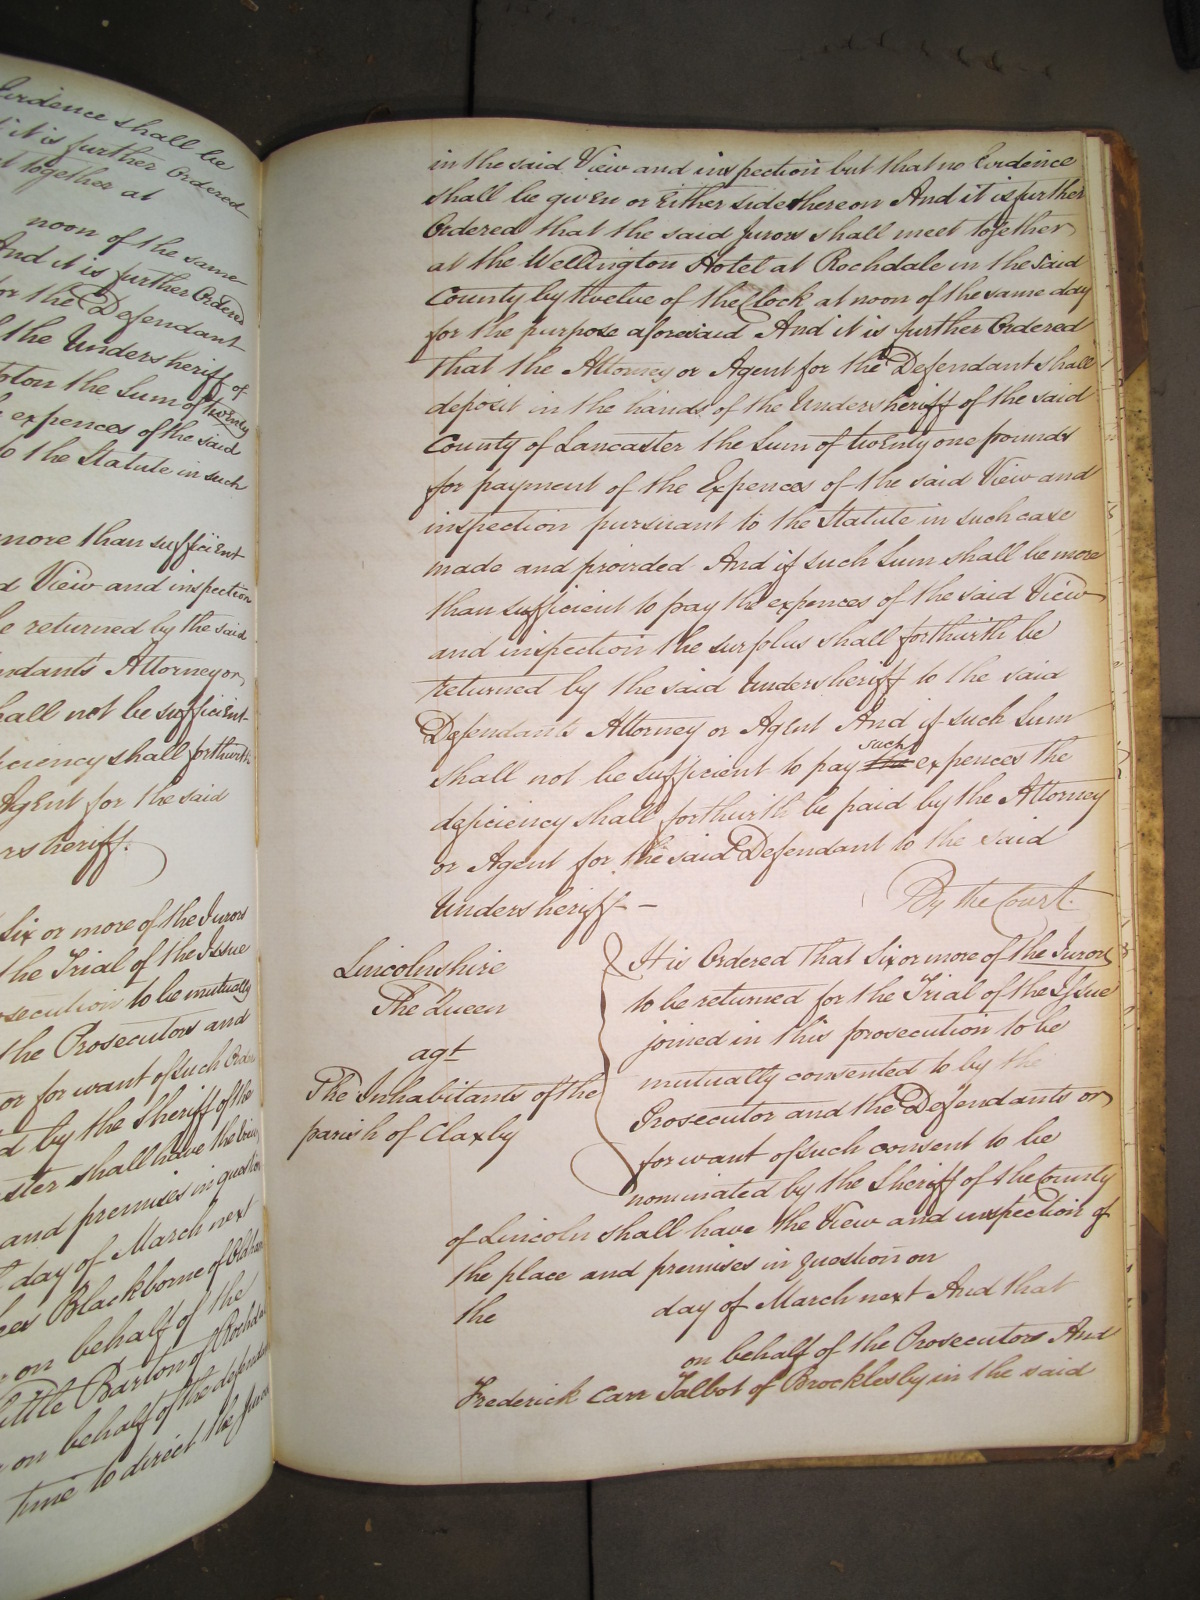 Evidence shall be
it is further Ordered
together at
noon of the same
And it is further Ordered
for the Defendant
the Undersheriff of
the Sum of twenty
expences of the said
to the Statute in such
more than sufficient
View and inspection
be returned by the said
Attorney or
shall not be sufficient
deficiency shall forthwith
Agent for the said
Six or more of the Jurors
the Trial of the Issue
to be mutually
the Prosecutors and
or for want of such
by the Sheriff of the
shall have the
and premises in question
day of March next
Blackborne of
on behalf of the
Little Barton of
on behalf of the
time to direct the
in the said View and inspection but that no Evidence
shall be given on Either side thereon And it is further
Ordered that the said Jurors shall meet together
at the Wellington Hotel at Rochdale in the said
County by twelve of the Clock at noon of the same day
for the purpose aforesaid And it is further Ordered
that the Attorney or Agent for the Defendant shall
deposit in the hands of the Undersheriff of the said
County of Lancaster the Sum of twenty one pounds
for payment of the Expences of the said View and
inspection pursuant to the Statute in such case
made and provided And if such Sum shall be more
than sufficient to pay the expences of the said View
and inspection the surplus shall forthwith be
returned by the said Undersheriff to the said
Defendants Attorney or Agent And if such Sum
shall not be sufficient to pay the such expences the
deficiency shall forthwith be paid by the Attorney
or Agent for the said Defendant to the said
Undersheriff –
By the Court.
Lincolnshire
The Queen
agt
The Inhabitants of the
parish of Claxby
It is Ordered that Six or more of the Jurors
to be returned for the Trial of the Issue
joined in this prosecution to be
mutually consented to by the
Prosecutor and the Defendants or
for want of such consent to be
nominated by the Sheriff of the County
of Lincoln shall have the View and inspection of
the place and premises in question on
the day of March next And that
on behalf of the Prosecutors And
Frederick Carr Talbot of Brocklesby in the said